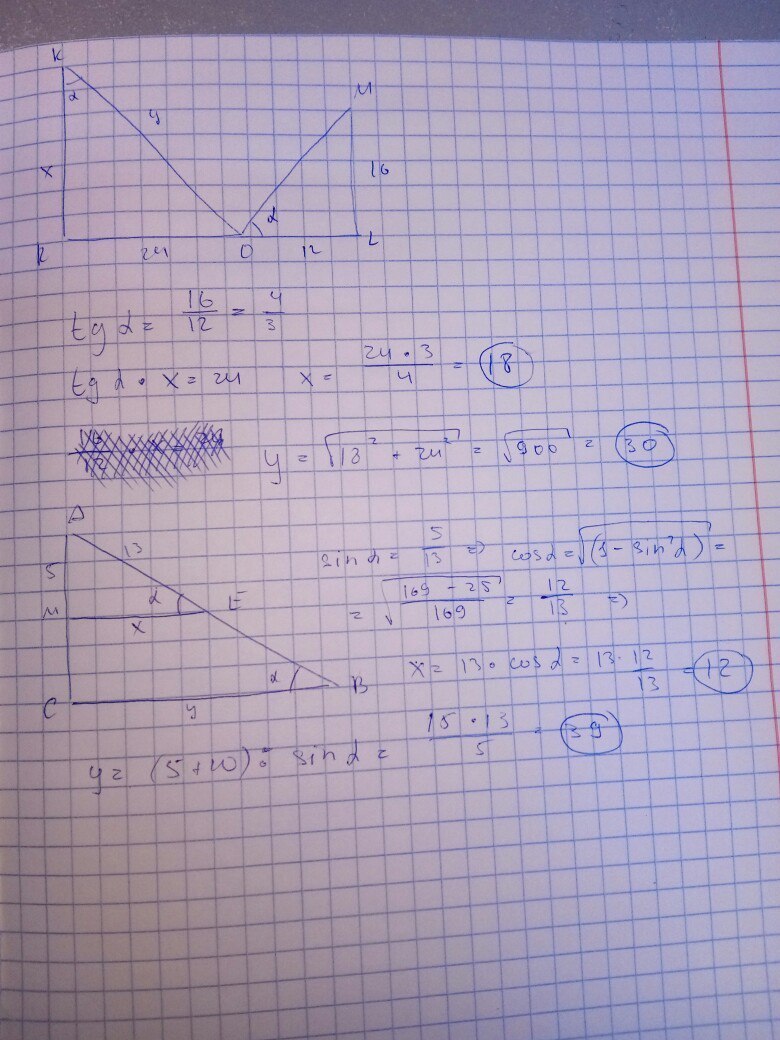 K
α
y
M
x
16
α
R 24 O 12 L
tg α = 16/12 = 4/3
tg α · x = 24 x = 24 · 3/4 = 18
y = √18² + 24² = √900 = 30
A
13
5
sin α = 5/13 ⇒ cos α = √(1 - sin² α) =
M α E
x
= √169 - 25/169 = 12/13 ⇒
x = 13 · cos α = 13 · 12/13 = 12
α B
C
y
y = (5 + 10) : sin α = 15 · 13/5 = 39